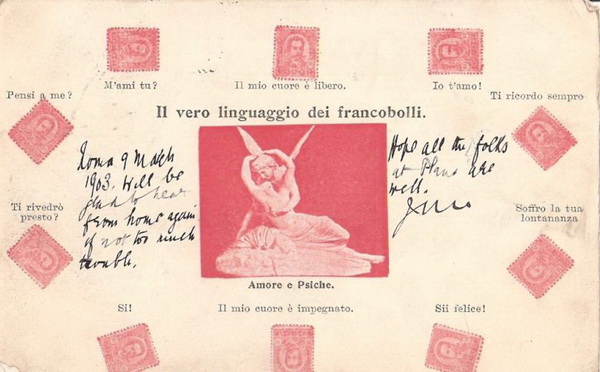 M'ami tu?
Il mio cuore è libero.
Io t'amo!
Pensi a me?
Ti ricordo sempre
Il vero linguaggio dei francobolli.
Roma 9 March
1903. Will be
glad to hear
from home again
if not too much
trouble.
Hope all the folks
at are
well.
Ti rivedrò
presto?
Soffro la tua
lontananza
Amore e Psiche.
Si!
Il mio cuore è impegnato.
Sii felice!